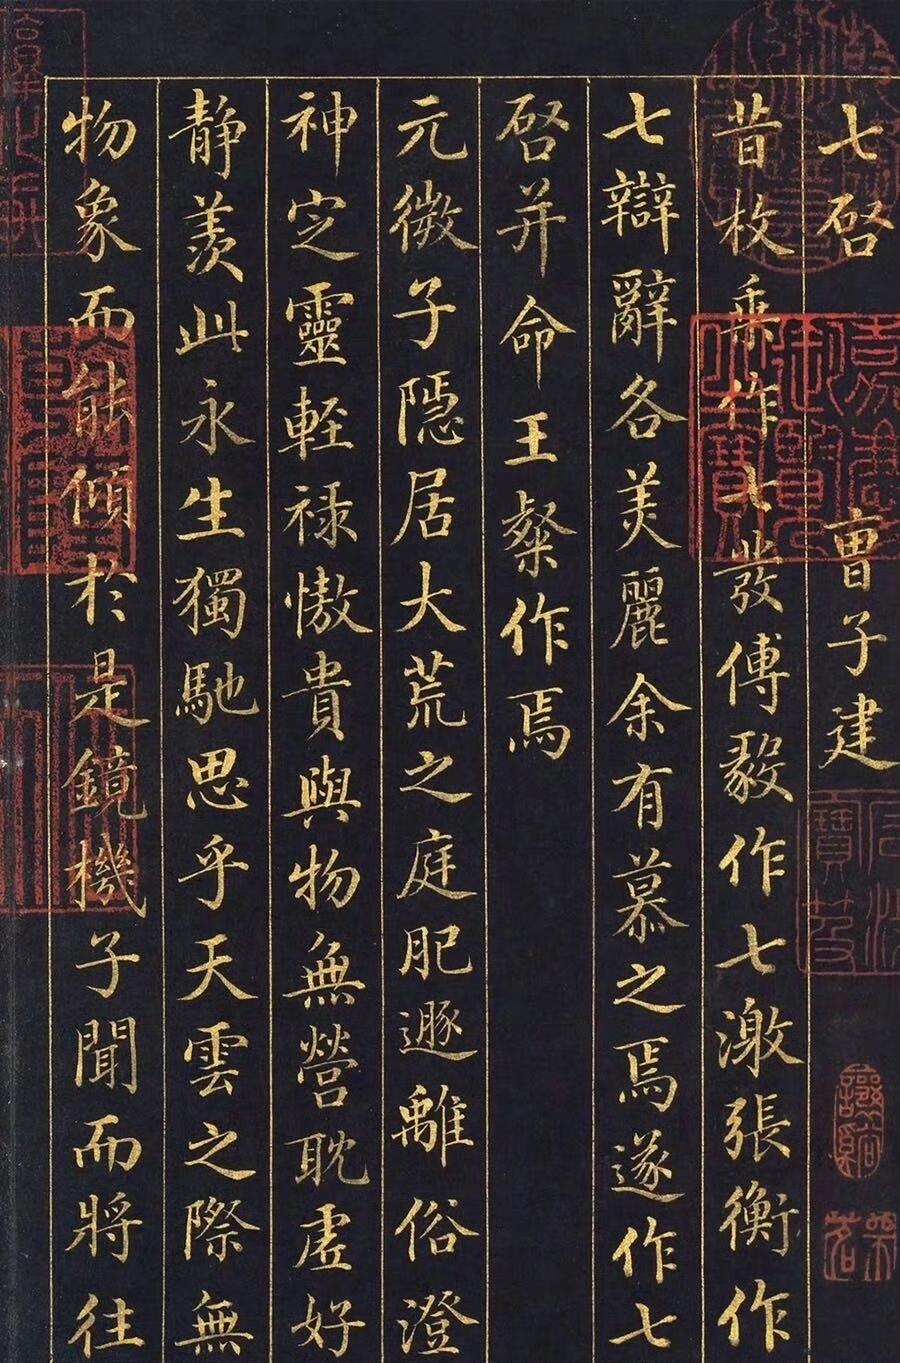 七啓 曹子建
昔枚乘作七發傅毅作七激張衡作
七辯辭各美麗余有慕之焉遂作七
啓并命王粲作焉
元微子隱居大荒之庭肥遯離俗澄
神定靈輕祿慠貴與物無營耽虛好
靜羨此永生獨馳思乎天雲之際無
物象而能傾於是鏡機子聞而將往